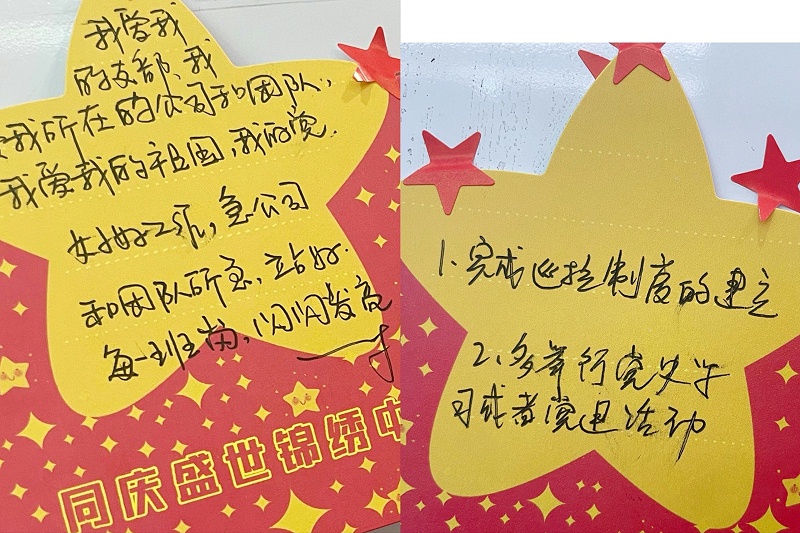 我爱我
的支部、我
我所在的公司和团队,
我爱我的祖国,我的党.
好好工作,急公司
和团队所急,站好
每一班岗,闪闪发亮
同庆盛世锦绣中
1、完成巡检制度的建立
2、多举行党史学
习或者党团活动